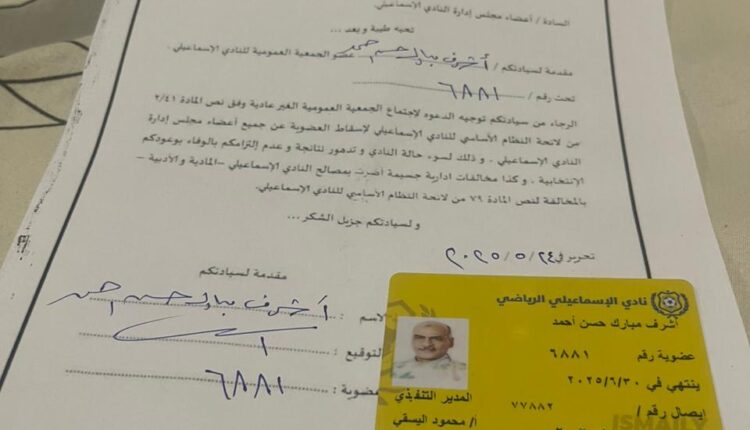 السادة / أعضاء مجلس إدارة النادي الإسماعيلي .
تحيه طيبة و بعد ...
مقدمة لسيادتكم / أشرف مبارك حسن احمد عضو الجمعية العمومية للنادي الإسماعيلي .
تحت رقم / ٦٨٨١
الرجاء من سيادتكم توجيه الدعوه لإجتماع الجمعية العمومية الغير عادية وفق نص المادة ٢/٤١
من لائحة النظام الأساسي للنادي الإسماعيلي لإسقاط العضوية عن جميع أعضاء مجلس إدارة
النادي الإسماعيلي . و ذلك لسوء حالة النادي و تدهور نتائجة و عدم إلتزامكم بالوفاء بوعودكم
الإنتخابية . و كذا مخالفات ادارية جسيمة أضرت بمصالح النادي الإسماعيلي –المادية و الأدبية –
بالمخالفة لنص المادة ٧٩ من لائحة النظام الأساسي للنادي الإسماعيلي.
و لسيادتكم جزيل الشكر ...
تحرير في ٢٤ / ٥ / ٢٠٢٥
مقدمة لسيادتكم
الاسم : أشرف مبارك حسن احمد
التوقيع :
العضوية : ٦٨٨١
نادي الإسماعيلي الرياضي
أشرف مبارك حسن أحمد
عضوية رقم ٦٨٨١
ينتهي في ٢٠٢٥/٦/٣٠
إيصال رقم / ٧٧٨٨٢
المدير التنفيذي
أ/ محمود اليسقي
ISMAILY